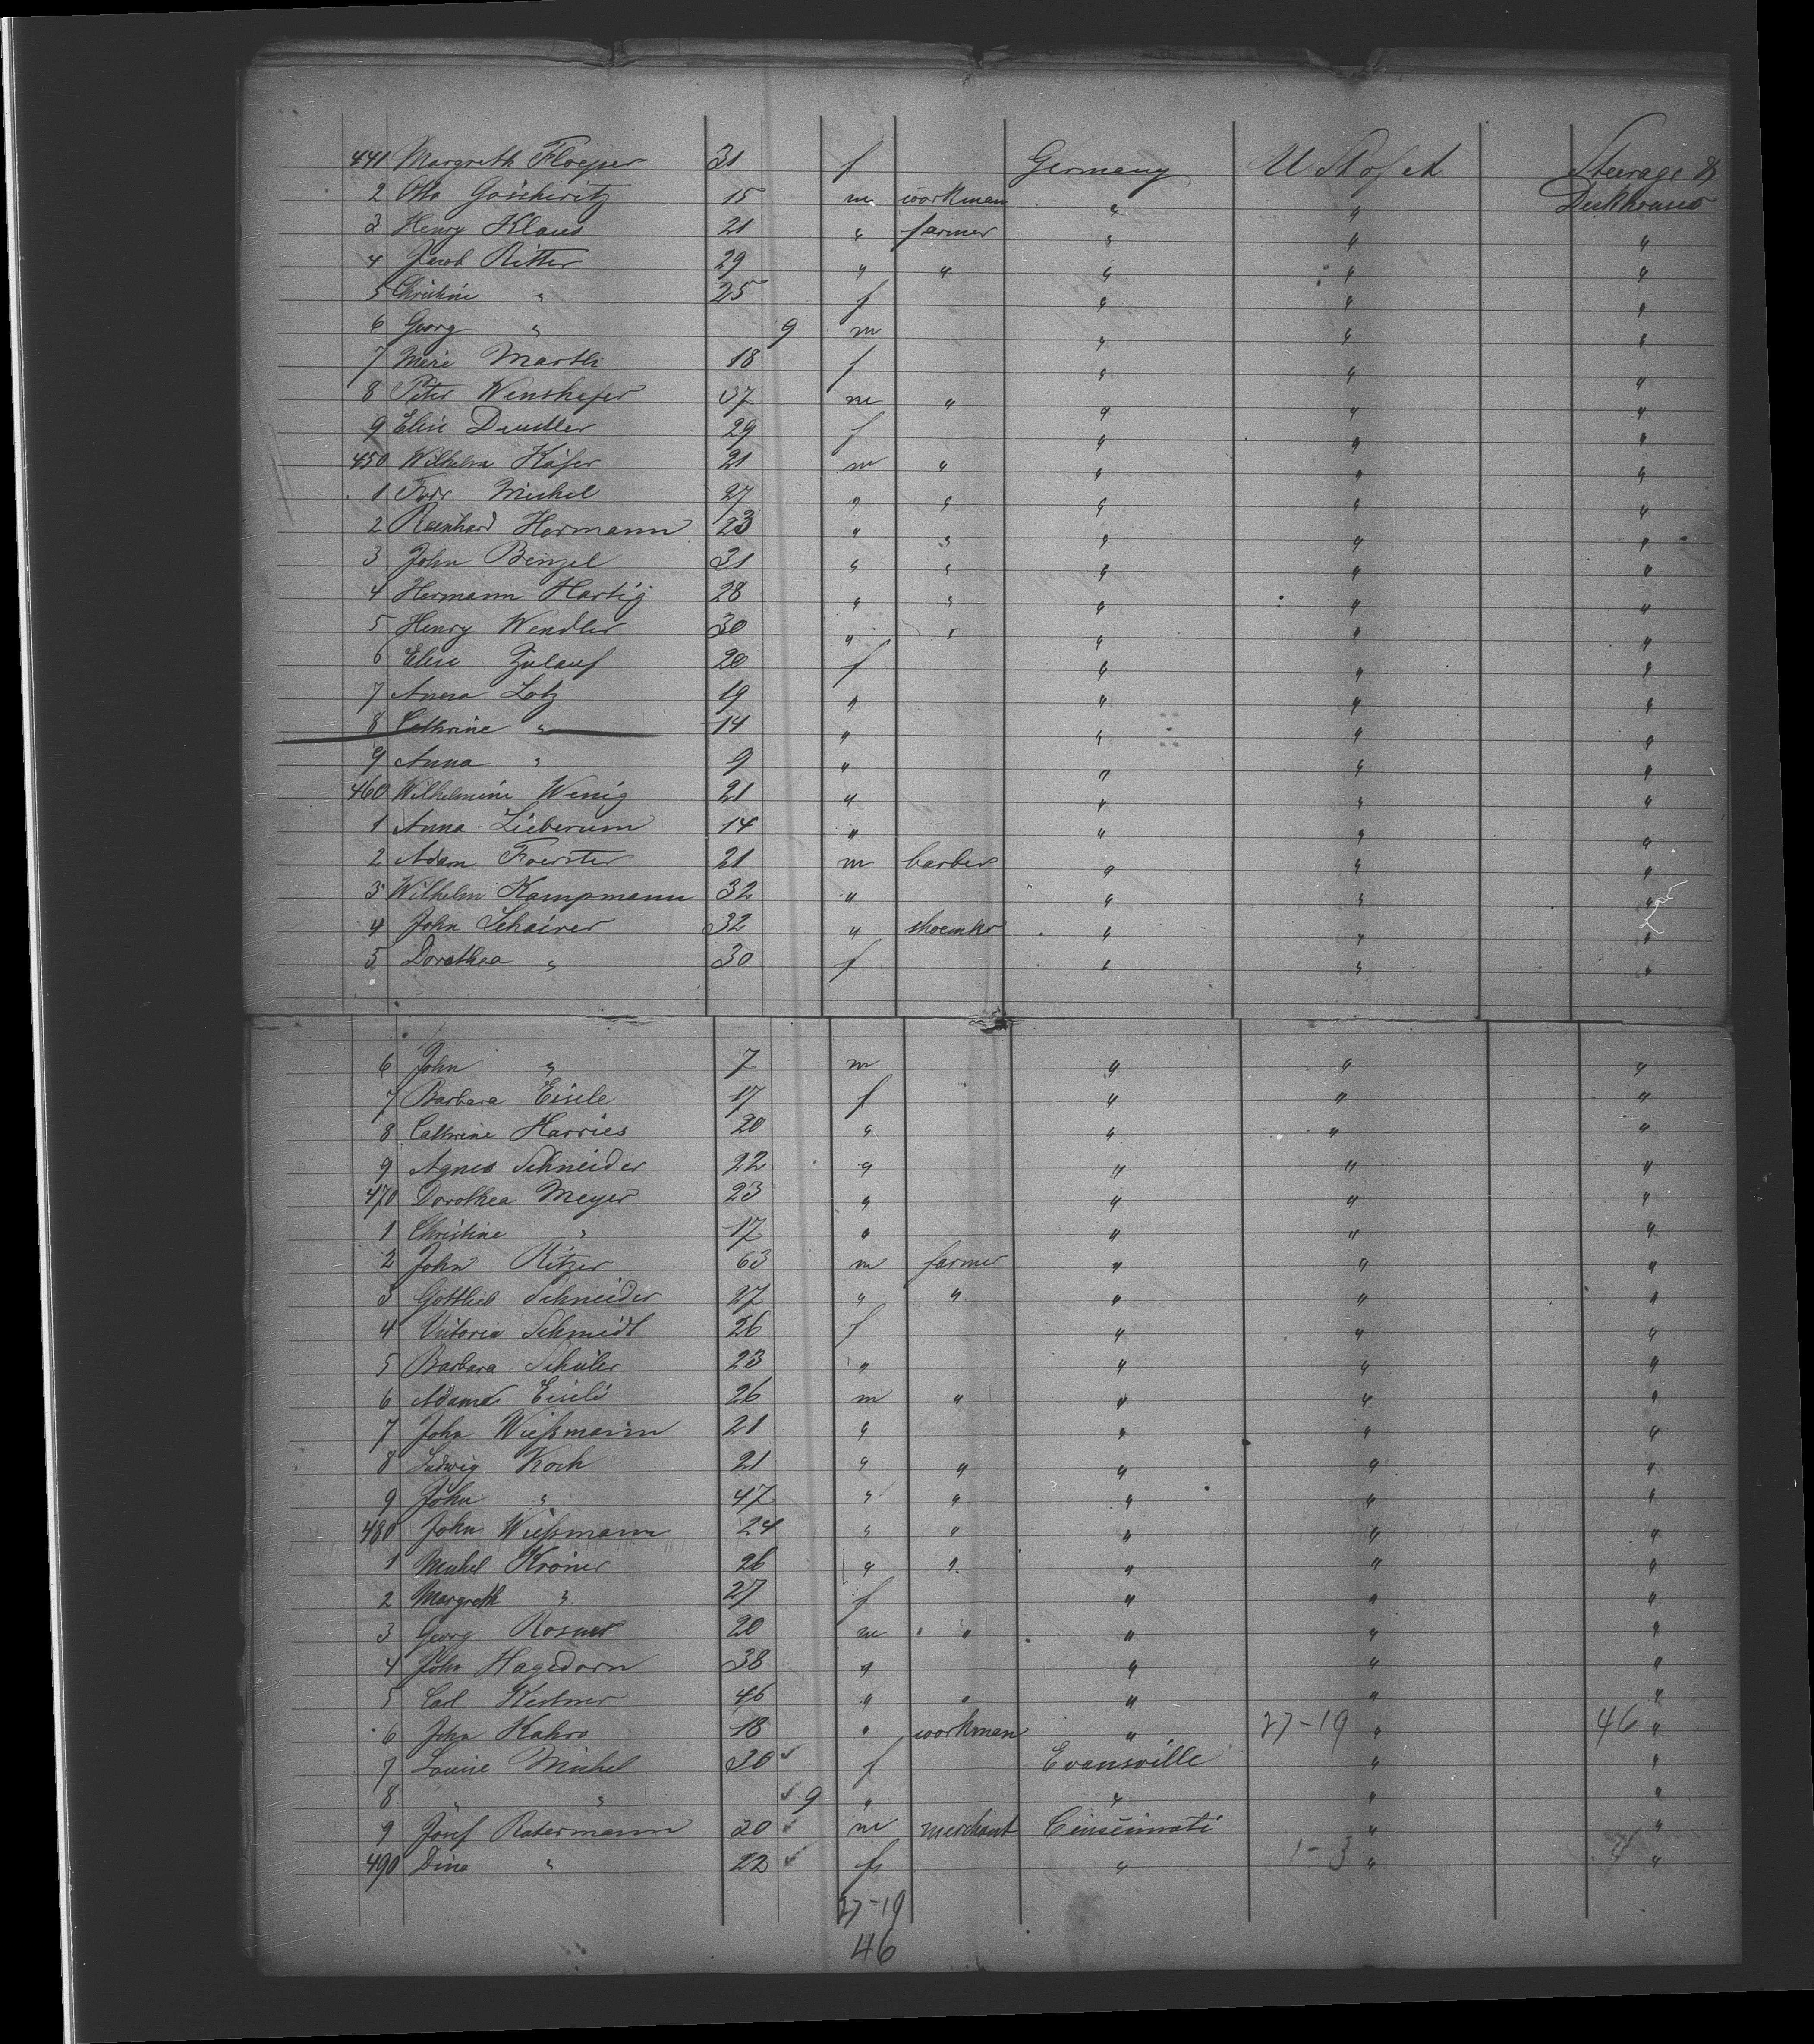 441 Margreth Floeper 31 f Germany U St of A Steerage &
2 Otto Goscheritz 15 m workman " " Deckhouse
3 Henry Klaus 21 " farmer " " "
4 Jacob Ritter 29 " " " " "
5 Christine " 25 f " " "
6 Georg " 9 m " " "
7 Marie Marth 18 f " " "
8 Peter Wenshefer 37 m " " " "
9 Elise Deudler 29 f " " "
450 Wilhelm Käfer 21 m " " " "
1 Michel 27 " " " " "
2 Reinhard Hermann 23 " " " " "
3 John Benzel 31 " " " " "
4 Hermann Hartig 28 " " " " "
5 Henry Wendler 30 " " " " "
6 Elise Zulauf 20 f " " "
7 Anna Lotz 19 " " " "
8 Cathrine " 14 " " " "
9 Anna " 9 " " " "
460 Wilhelmine Wenig 21 " " " "
1 Anna Lieberum 14 " " " "
2 Adam Foerster 21 m barber " " "
3 Wilhelm Kampmann 32 " " " "
4 John Schairer 32 " shoemkr " " "
5 Dorothea " 30 f " " "
6 John " 7 m " " "
7 Barbara Eisele 17 f " " "
8 Cathrine Harries 20 " " " "
9 Agnes Schneider 22 " " " "
470 Dorothea Meyer 23 " " " "
1 Christine " 17 " " " "
2 John Ritzer 63 m farmer " " "
3 Gottlieb Schneider 27 " " " " "
4 Victoria Schmidt 26 f " " "
5 Barbara Schüler 23 " " " "
6 Adama Eisele 26 m " " " "
7 John Wießmann 21 " " " "
8 Ludwig Koch 21 " " " " "
9 John " 47 " " " " "
480 John Wießmann 24 " " " " "
1 Michel Kröner 26 " " " " "
2 Margreth " 27 f " " "
3 Georg Rosner 20 m " " " "
4 John Hagedorn 38 " " " "
5 Carl Kestner 46 " " " " "
6 John Kahrs 18 " workman " 27-19 " 46 "
7 Louise Michel 30 ✓ f Evansville " "
8 " " ✓ 9 " " " "
9 Josef Ratermann 20 ✓ m merchant Cinseinnati " "
490 Dina " 22 ✓ f " 1-3 " 4 "
27-19
46